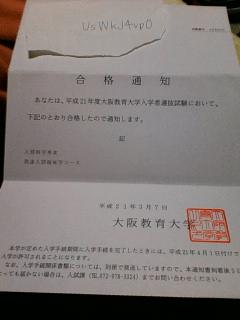 UsWKJ4vp0
合格通知
あなたは、平成21年度大阪教育大学入学者選抜試験において、
下記のとおり合格したので通知します。
記
人間科学専攻
発達人間福祉学コース
平成21年3月7日
大阪教育大学
本学が定めた入学手続期間に入学手続を完了したときには、平成21年4月1日付けで
入学が許可されることになります。
なお、入学手続関係書類については、別便で発送していますので、本通知書到着後
っても届かない場合は、入試課（℡.072-978-3324）までお問い合わせください。